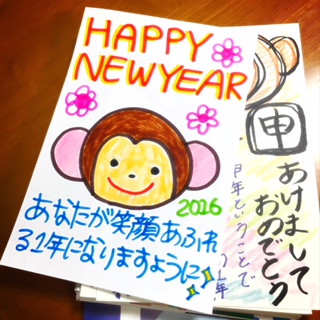 HAPPY
NEW YEAR
2016
あなたが笑顔あふれ
る1年になりますように
申
あけまして
おめでとう
申年ということで